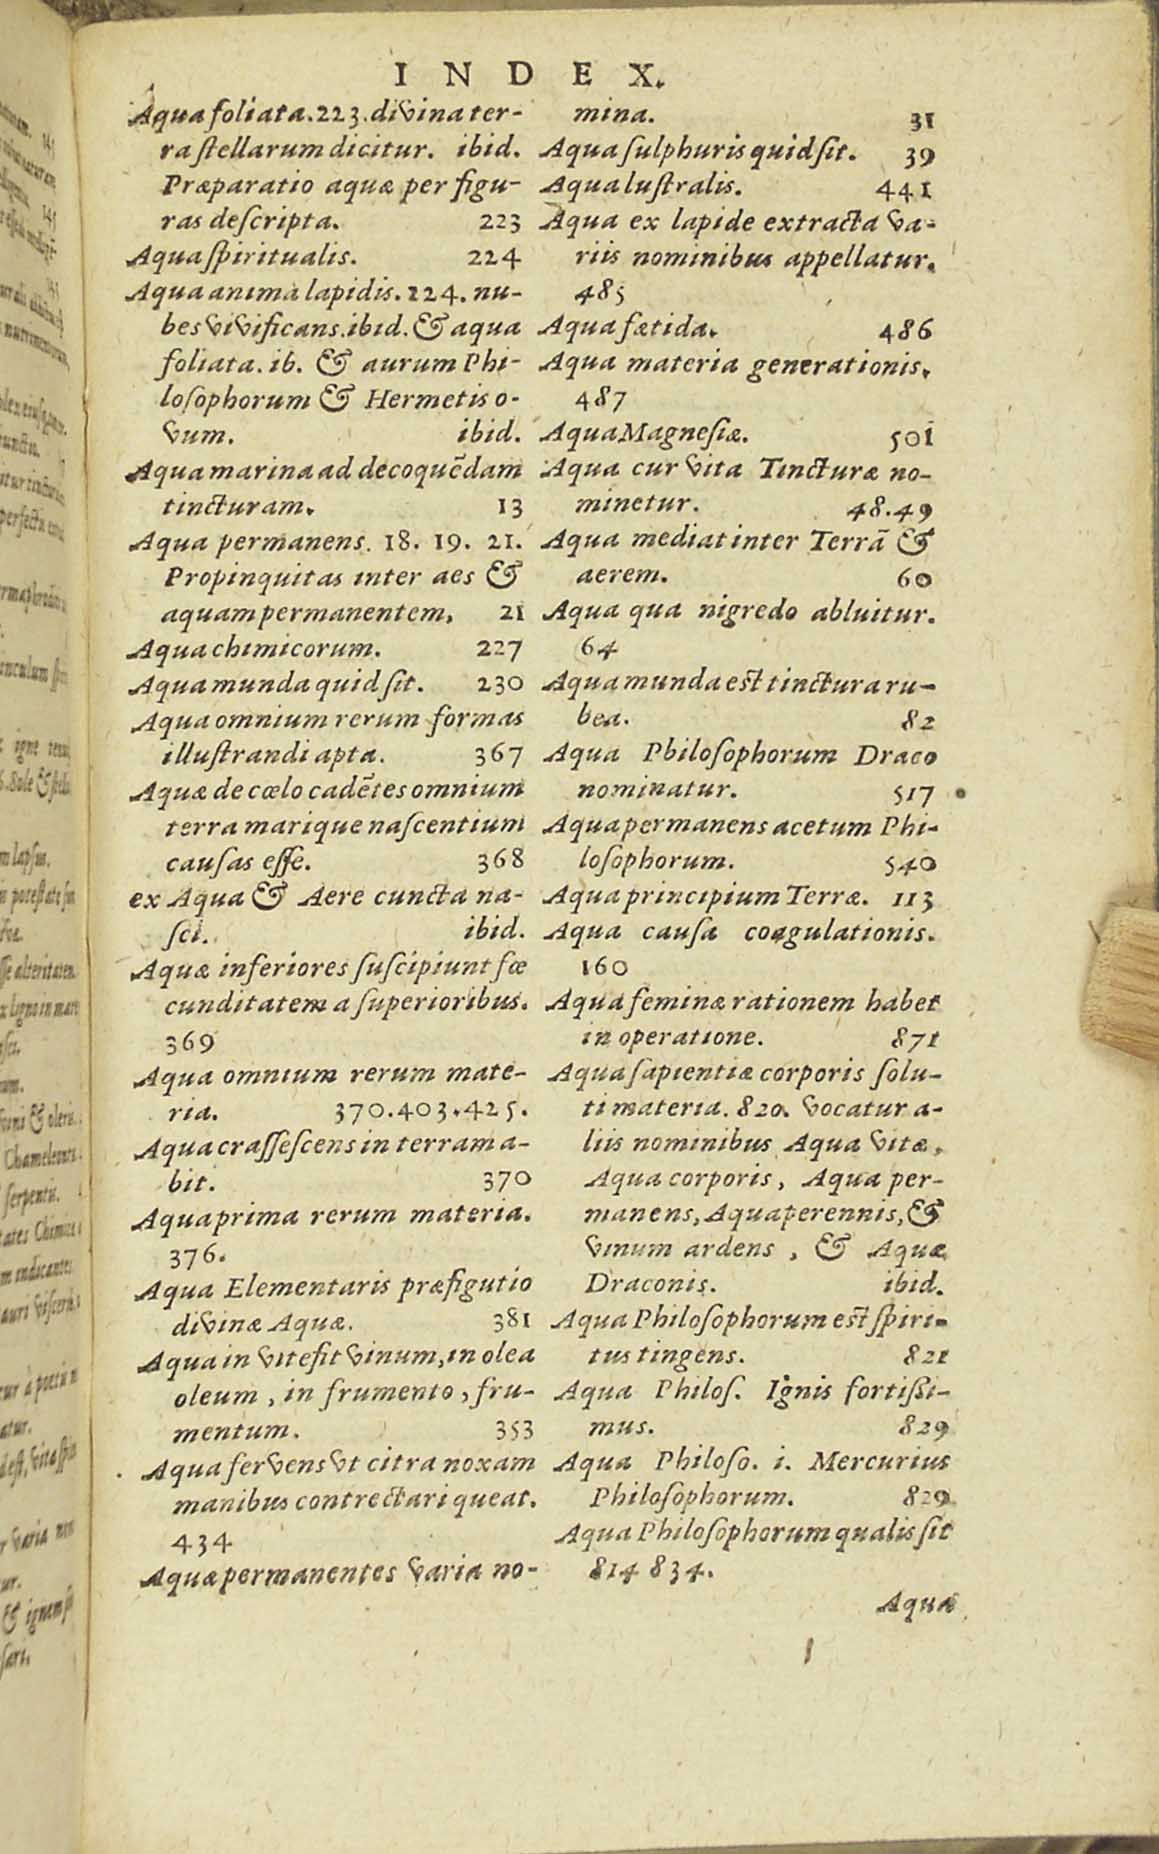 INDEX.
Aqua foliata. 223. divina ter-
ra stellarum dicitur. ibid.
Præparatio aquæ per figu-
ras descripta. 223
Aqua spiritualis. 224
Aqua anima lapidis. 224. nu-
bes vivificans. ibid. & aqua
foliata. ib. & aurum Phi-
losophorum & Hermetis o-
vum. ibid.
Aqua marina ad decoquẽdam
tincturam. 13
Aqua permanens. 18. 19. 21.
Propinquitas inter aes &
aquam permanentem, 21
Aqua chimicorum. 227
Aqua munda quid sit. 230
Aqua omnium rerum formas
illustrandi apta. 367
Aquæ de cœlo cadẽtes omnium
terra marique nascentium
causas esse. 368
ex Aqua & Aere cuncta na-
sci. ibid.
Aquæ inferiores suscipiunt fœ
cunditatem a superioribus.
369
Aqua omnium rerum mate-
ria. 370.403.425.
Aqua crassescens in terram a-
bit. 370
Aqua prima rerum materia.
376.
Aqua Elementaris præfigutio
divinæ Aquæ. 381
Aqua in vite fit vinum, in olea
oleum, in frumento, fru-
mentum. 353
Aqua fervens vt citra noxam
manibus contrectari queat.
434
Aquæ permanentes varia no-
mina. 31
Aqua sulphuris quid sit. 39
Aqua lustralis. 441
Aqua ex lapide extracta va-
riis nominibus appellatur.
485
Aqua fœtida. 486
Aqua materia generationis.
487
Aqua Magnesiæ. 501
Aqua cur vita Tincturæ no-
minetur. 48.49
Aqua mediat inter Terrã &
aerem. 60
Aqua qua nigredo abluitur.
64
Aqua munda est tinctura ru-
bea. 82
Aqua Pbilosophorum Draco
nominatur. 517
Aqua permanens acetum Phi-
losophorum. 540
Aqua principium Terræ. 113
Aqua causa coagulationis.
160
Aqua feminæ rationem habet
in operatione. 871
Aqua sapientiæ corporis solu-
ti materia. 820. vocatur a-
liis nominibus Aqua vitæ,
Aqua corporis, Aqua per-
manens, Aqua perennis, &
vinum ardens, & Aquæ
Draconis. ibid.
Aqua Philosophorum est spiri-
tus tingens. 821
Aqua Philos. Ignis fortissi-
mus. 829
Aqua Philoso. i. Mercurius
Philosophorum. 829
Aqua Philosophorum qualis sit
814 834.
Aquæ